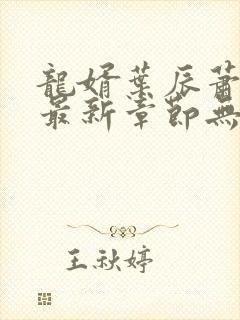 龍婿葉辰蕭
最新章節無
王秋婷